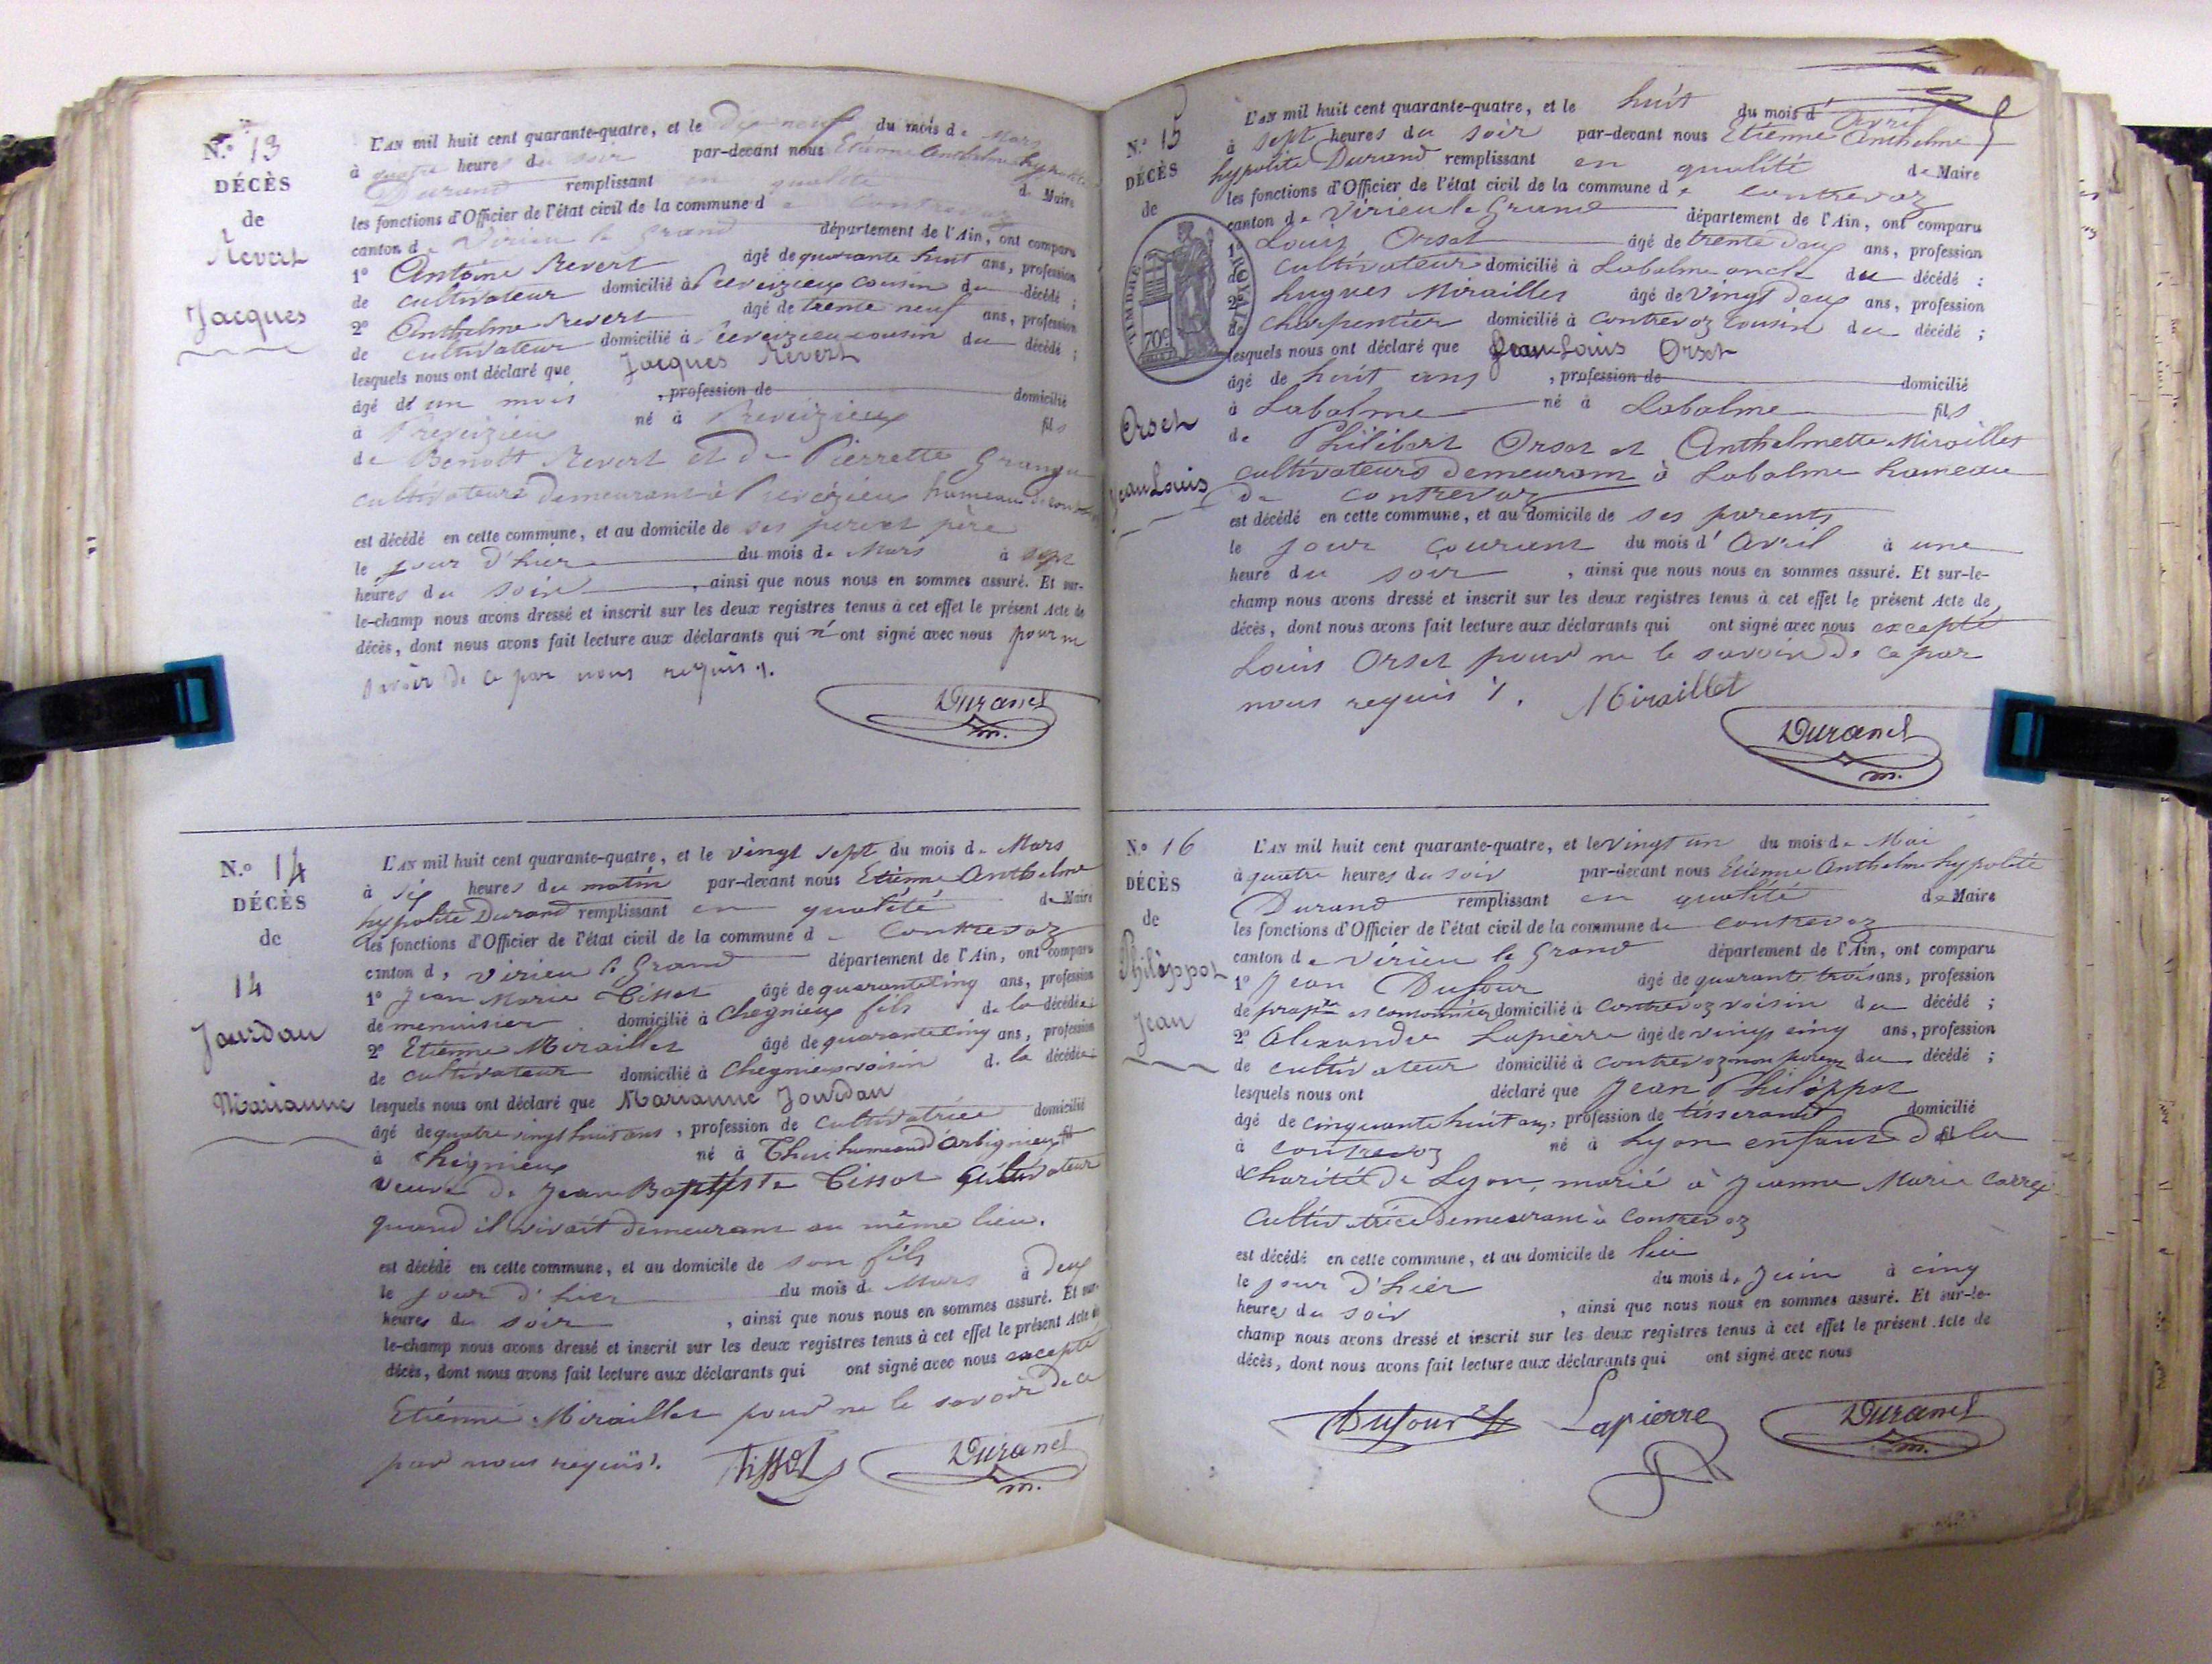 N.º 13
DÉCÈS
de
Revert
Jacques
L'AN mil huit cent quarante-quatre, et le dix neuf du mois de Mars
à quatre heures du soir par-devant nous Etienne Anthelme hypolite
Durand remplissant en qualité de Maire
les fonctions d'Officier de l'état civil de la commune de Contrevoz
canton de Virieu le Grand département de l'Ain, ont comparu
1º Antoine Revert âgé de quarante huit ans, profession
de cultivateur domicilié à Preveizieux cousin du décédé ;
2º Anthelme Revert âgé de trente neuf ans, profession
de cultivateur domicilié à Preveizieu cousin du décédé ;
lesquels nous ont déclaré que Jacques Revert
âgé de un mois , profession de domicilié
à Preveizieu né à Preveizieux fils
de Benoît Revert et de Pierrette Grange
cultivateurs demeurant à Preveizieu hameau de
est décédé en cette commune, et au domicile de ses père
le jour d'hier du mois de Mars à sept
heures du soir , ainsi que nous nous en sommes assuré. Et sur-
le-champ nous avons dressé et inscrit sur les deux registres tenus à cet effet le présent Acte de
décès, dont nous avons fait lecture aux déclarants qui n'ont signé avec nous pour ne
savoir de ce par nous requis ./.
Durand
m.
N.º 14
DÉCÈS
de
14
Jourdan
Marianne
L'AN mil huit cent quarante-quatre, et le vingt sept du mois de Mars
à six heures du matin par-devant nous Etienne Anthelme
hypolite Durand remplissant en qualité de Maire
les fonctions d'Officier de l'état civil de la commune de Contrevoz
canton de Virieu le Grand département de l'Ain, ont comparu
1º Jean Marie Tissot âgé de quarante cinq ans, profession
de menuisier domicilié à Chegnieux fils de la décédée ;
2º Etienne Miraillet âgé de quarante cinq ans, profession
de cultivateur domicilié à Chegnieux voisin de la décédée ;
lesquels nous ont déclaré que Marianne Jourdan
âgé de quatre vingt huit ans , profession de cultivatrice domicilié
à Chegnieux né à Thoi hameau d'arbignieu fil
veuve de Jean Baptiste Tissot cultivateur
quand il vivait demeurant au même lieu.
est décédé en cette commune, et au domicile de son fils
le jour d'hier du mois de Mars à deux
heures du soir , ainsi que nous nous en sommes assuré. Et sur-
le-champ nous avons dressé et inscrit sur les deux registres tenus à cet effet le présent Acte de
décès, dont nous avons fait lecture aux déclarants qui ont signé avec nous excepté
Etienne Miraillet pour ne le savoir de ce
par nous requis ./.
Tissot
Durand
m.
N.º 15
DÉCÈS
de
TIMBRE ROYAL
70c.
Orset
Jean Louis
L'AN mil huit cent quarante-quatre, et le huit du mois d'Avril
à sept heures du soir par-devant nous Etienne Anthelme
hypolite Durand remplissant en qualité de Maire
les fonctions d'Officier de l'état civil de la commune de Contrevoz
canton de Virieu le Grand département de l'Ain, ont comparu
1º Louis Orset âgé de trente deux ans, profession
de cultivateur domicilié à Labalme oncle du décédé ;
2º hugues Miraillet âgé de vingt deux ans, profession
de charpentier domicilié à Contrevoz cousin du décédé ;
lesquels nous ont déclaré que Jean Louis Orset
âgé de huit ans , profession de domicilié
à Labalme né à Labalme fils
de Philibert Orset et Anthelmette Miraillet
cultivateurs demeurant à Labalme hameau
de Contrevoz
est décédé en cette commune, et au domicile de ses parents
le jour courant du mois d'Avril à une
heure du soir , ainsi que nous nous en sommes assuré. Et sur-le-
champ nous avons dressé et inscrit sur les deux registres tenus à cet effet le présent Acte de
décès, dont nous avons fait lecture aux déclarants qui ont signé avec nous excepté
Louis Orset pour ne le savoir de ce par
nous requis ./. Miraillet
Durand
m.
N.º 16
DÉCÈS
de
Philippot
Jean
L'AN mil huit cent quarante-quatre, et le vingt un du mois de Mai
à quatre heures du soir par-devant nous Etienne Anthelme hypolite
Durand remplissant en qualité de Maire
les fonctions d'Officier de l'état civil de la commune de Contrevoz
canton de Virieu le Grand département de l'Ain, ont comparu
1º Jean Dufour âgé de quarante trois ans, profession
de domicilié à Contrevoz voisin du décédé ;
2º Alexandre Lapierre âgé de vingt cinq ans, profession
de cultivateur domicilié à Contrevoz non parent du décédé ;
lesquels nous ont déclaré que Jean Philippot
âgé de cinquante huit ans, profession de tisserand domicilié
à Contrevoz né à Lyon enfant de la
charité de Lyon, marié à Jeanne Marie Carrex
cultivatrice demeurant à Contrevoz
est décédé en cette commune, et au domicile de lui
le jour d'hier du mois de Juin à cinq
heures du soir , ainsi que nous nous en sommes assuré. Et sur-le-
champ nous avons dressé et inscrit sur les deux registres tenus à cet effet le présent Acte de
décès, dont nous avons fait lecture aux déclarants qui ont signé avec nous
Dufour Lapierre Durand
m.